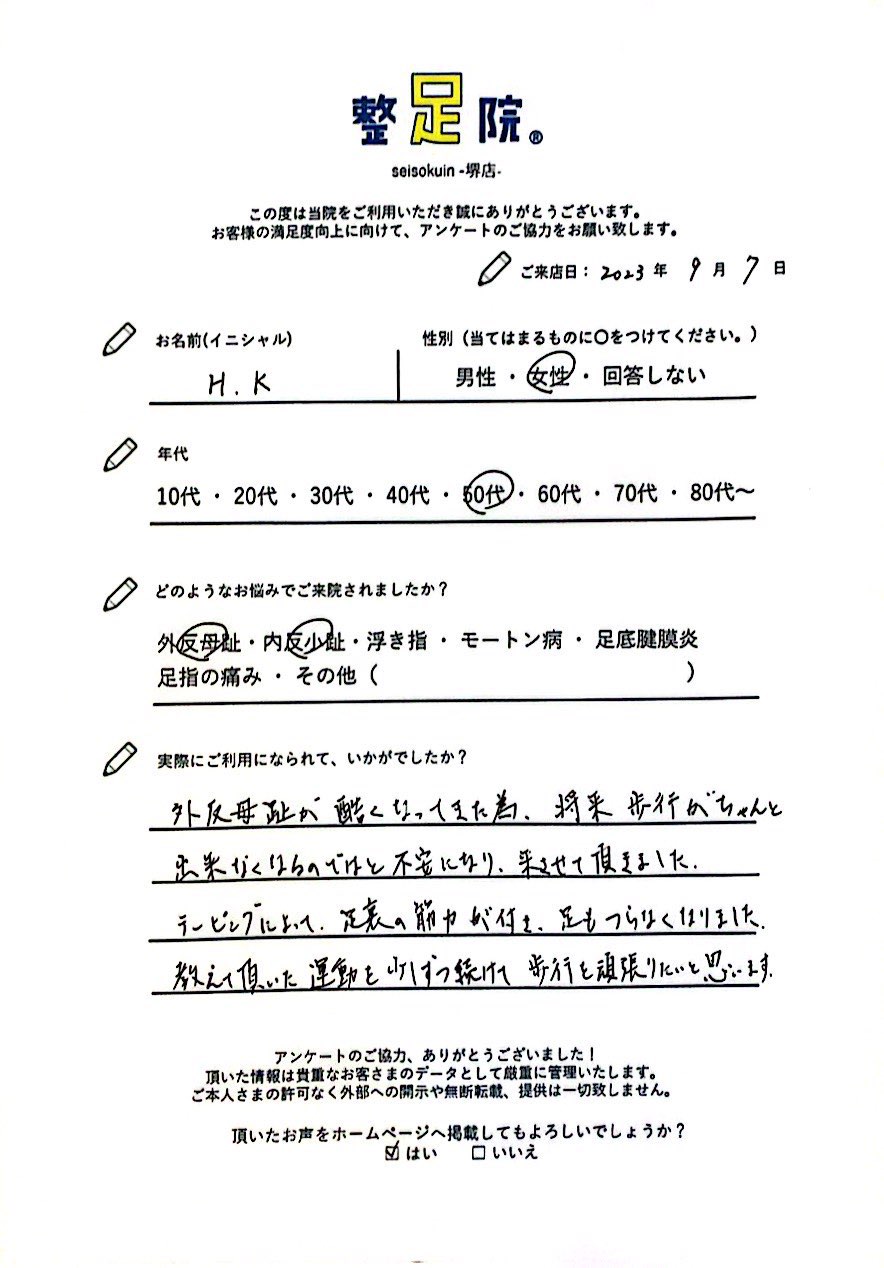 整足院®
seisokuin -堺店-
この度は当院をご利用いただき誠にありがとうございます。
お客様の満足度向上に向けて、アンケートのご協力をお願い致します。
ご来店日：2023年 9月 7日
お名前(イニシャル) 性別（当てはまるものに〇をつけてください。）
H.K 男性・女性・回答しない
年代
10代・20代・30代・40代・50代・60代・70代・80代～
どのようなお悩みでご来院されましたか？
外反母趾・内反小趾・浮き指・モートン病・足底腱膜炎
足指の痛み・その他（ ）
実際にご利用になられて、いかがでしたか？
外反母趾が酷くなってきた為、将来歩行がちゃんと
出来なくなるのではと不安になり、来させて頂きました。
テーピングによって、足裏の筋力が付き、足もつらなくなりました。
教えて頂いた運動を少しずつ続けて歩行を頑張りたいと思います。
アンケートのご協力、ありがとうございました！
頂いた情報は貴重なお客さまのデータとして厳重に管理いたします。
ご本人さまの許可なく外部への開示や無断転載、提供は一切致しません。
頂いたお声をホームページへ掲載してもよろしいでしょうか？
☑はい □いいえ